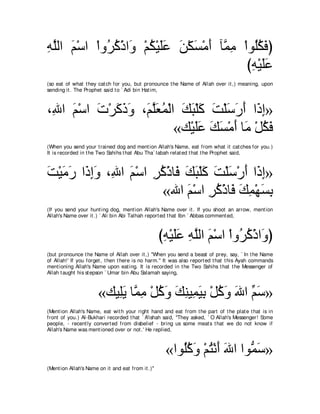 (فَكُلُواْ مِمَّآ أَمْسَكْنَ عَلَيْكُمْ وَاذْكُرُواْ اسْمَ اللَّهِ
عَلَيْهِ)
(so eat of what they catch for you, but pronounce the Name of Allah over it,) meaning, upon
sending it. The Prophet said to `Adi bin Hatim,
«إِذَا أَرْسَلْتَ كَلْبَكَ الْمُعَلَّمَ، وَذَكَرْتَ اسْمَ اللهِ،
فَكُلْ مَا أَمْسَكَ عَلَيْكَ»
(When you send your trained dog and mention Allah's Name, eat from what it catches for you.)
It is recorded in the Two Sahihs that Abu Tha`labah related that the Prophet said,
«إِذَا أَرْسَلْتَ كَلْبَكَ فَاذْكُرِ اسْمَ اللهِ، وَإِذَا رَمَيْتَ
بِسَهْمِكَ فَاذْكُرِ اسْمَ الله»
(If you send your hunting dog, mention Allah's Name over it. If you shoot an arrow, mention
Allah's Name over it.) `Ali bin Abi Talhah reported that Ibn `Abbas commented,
(وَاذْكُرُواْ اسْمَ اللَّهِ عَلَيْهِ)
(but pronounce the Name of Allah over it,) "When you send a beast of prey, say, `In the Name
of Allah!' If you forget, then there is no harm.'' It was also reported that this Ayah commands
mentioning Allah's Name upon eating. It is recorded in the Two Sahihs that the Messenger of
Allah taught his stepson `Umar bin Abu Salamah saying,
«سَمِّ اللهَ وَكُلْ بِيَمِينِكَ وَكُلْ مِمَّا يَلِيكَ»
(Mention Allah's Name, eat with your right hand and eat from the part of the plate that is in
front of you.) Al-Bukhari recorded that `A'ishah said, "They asked, `O Allah's Messenger! Some
people, - recently converted from disbelief - bring us some meats that we do not know if
Allah's Name was mentioned over or not.' He replied,
«سَمُّوا اللهَ أَنْتُمْ وَكُلُوا»
(Mention Allah's Name on it and eat from it.)''